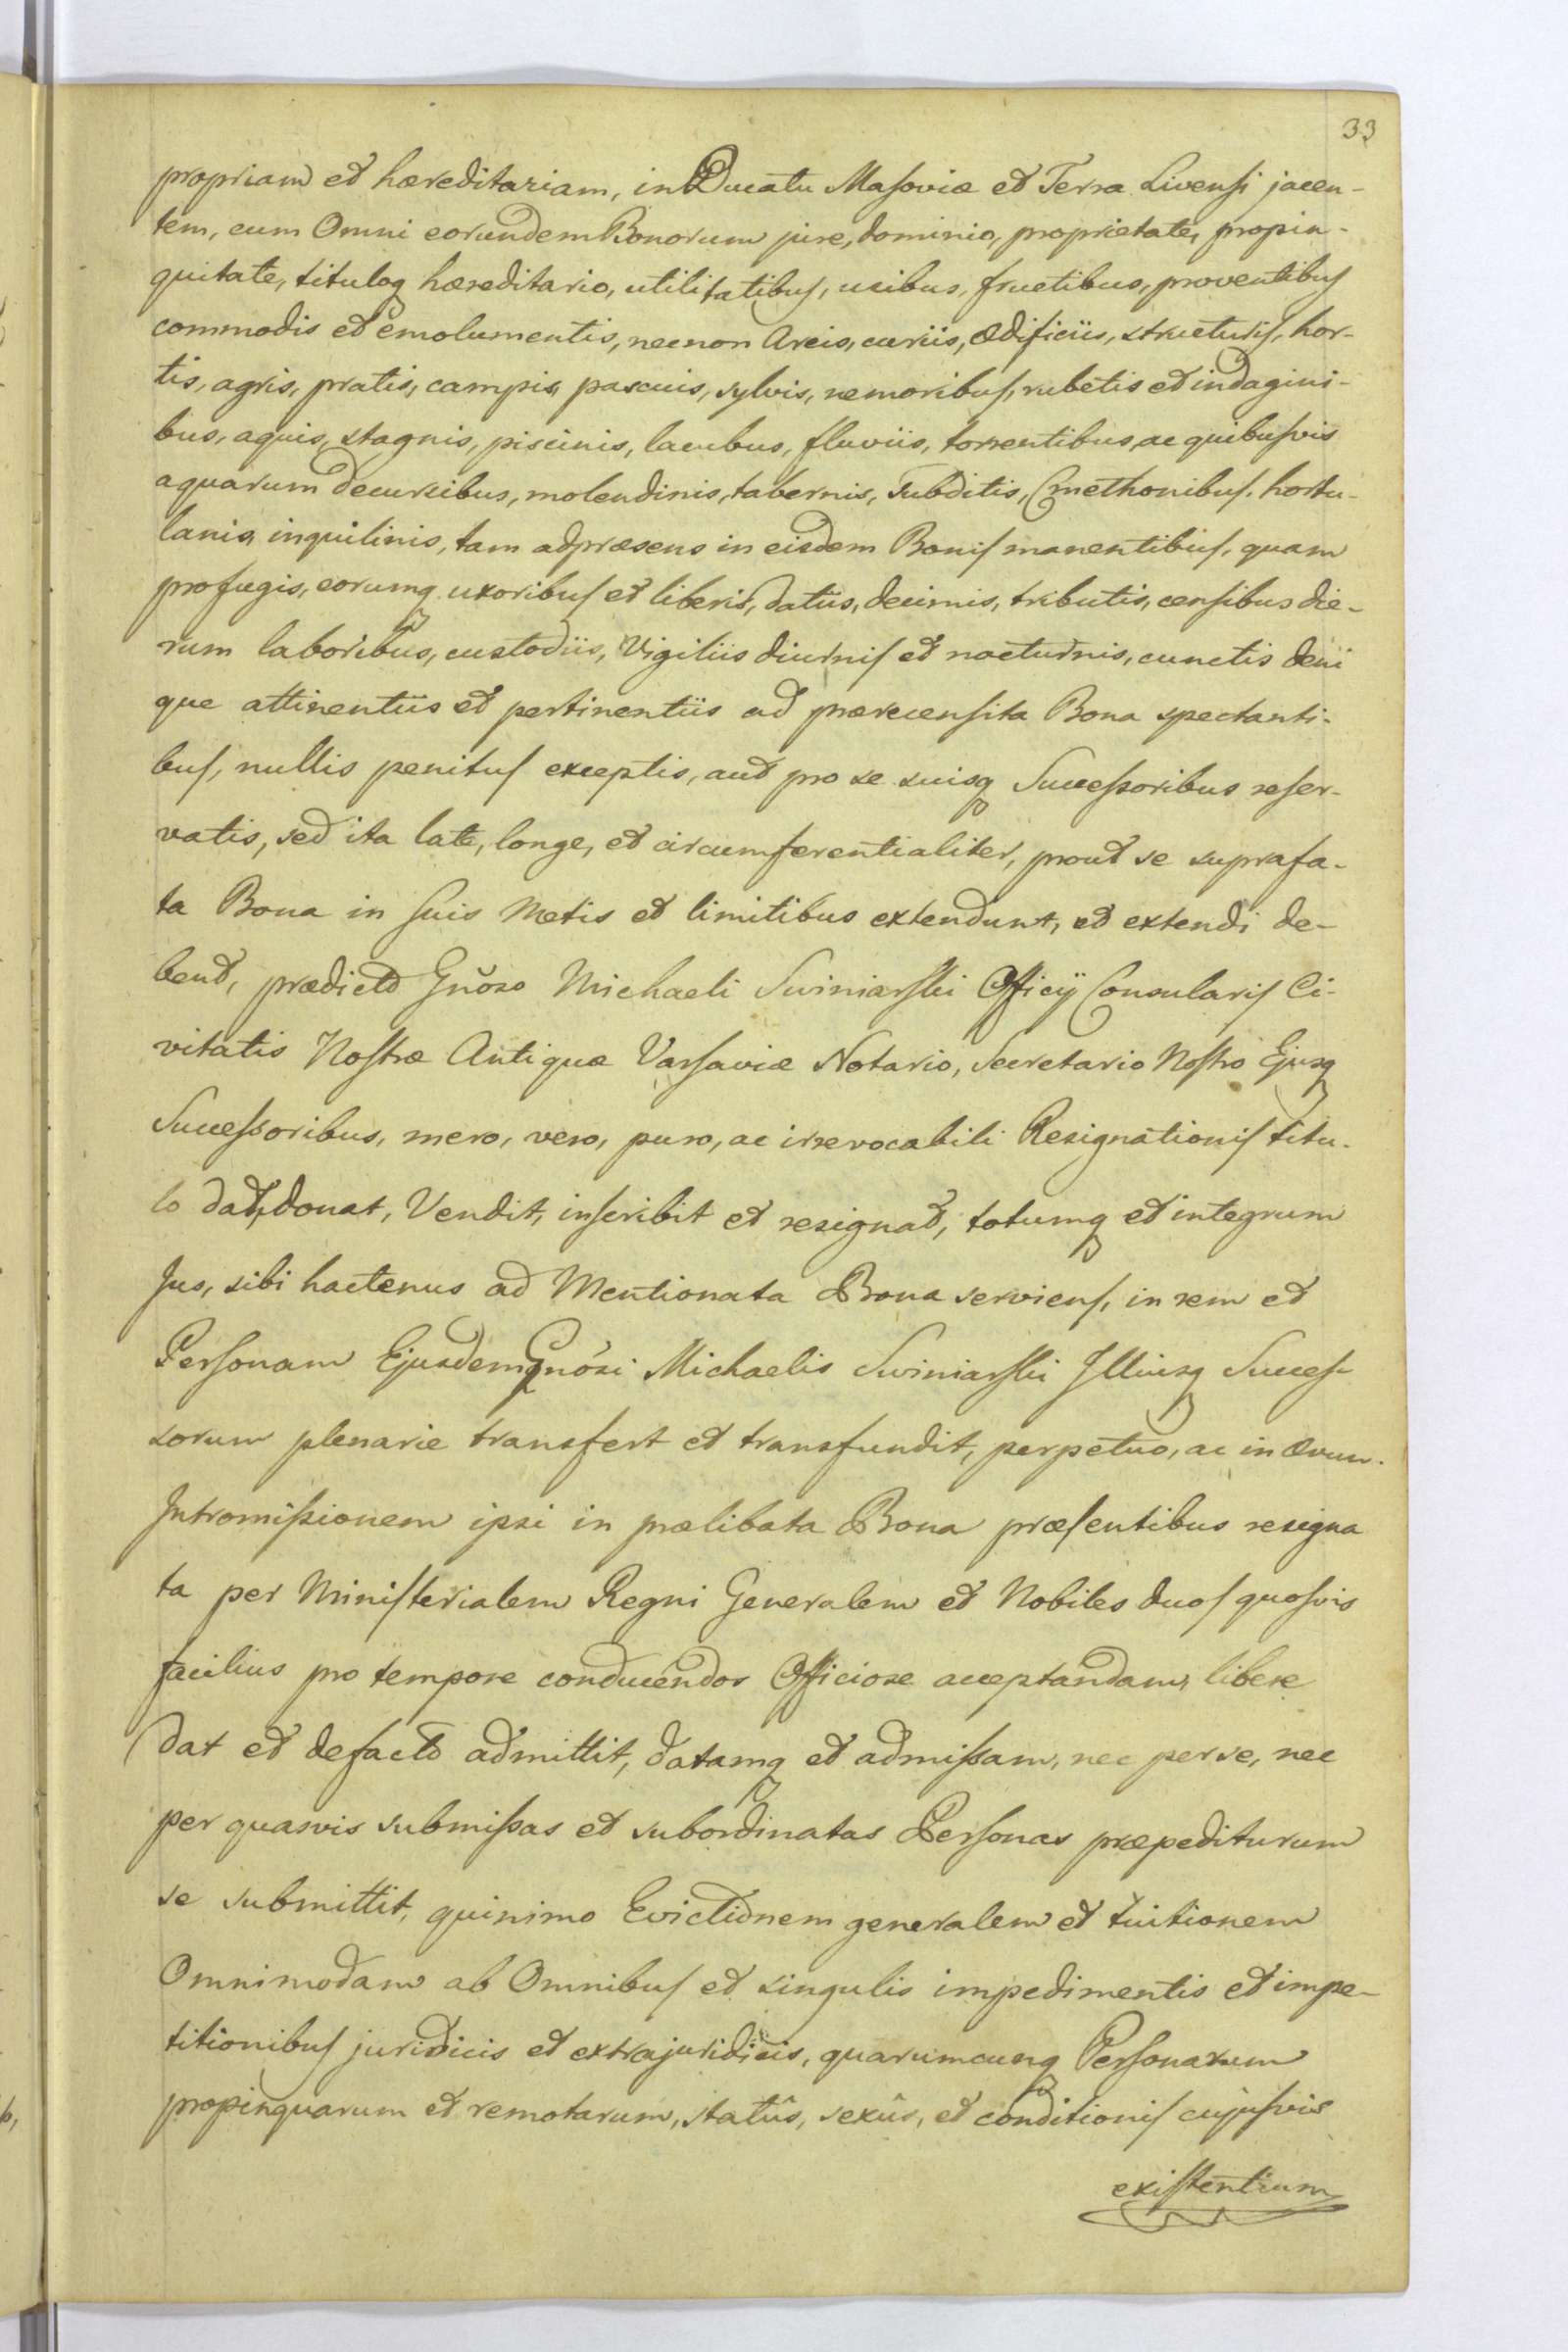 33
propriam et hæreditariam, in Ducatu Masoviæ et Terra Livensi jacen-
tem, cum Omni eorundem Bonorum jure, dominio, proprietate, propin-
quitate, tituloq hæreditario, utilitatibus, usibus, fructibus, proventibus
commodis et emolumentis, necnon Areis, curiis, Ædificiis, structuris, hor-
tis, agris, pratis, campis, pascuis, sylvis, nemoribus, rubetis et indagini-
bus, aquis, stagnis, piscinis, lacubus, fluviis, torrentibus, ac quibusvis
aquarum decursibus, molendinis, tabernis, Subditis, Cmethonibus, hortu-
lanis, inquilinis, tam adpræsens in eisdem Bonis manentibus, quam
profugis, eorumq uxoribus et liberis, datiis, decimis, tributis, censibus die-
rum laboribus, custodiis, Vigiliis diurnis et nocturnis, cunctis deni
que attinentiis et pertinentiis ad præcensita Bona spectanti-
bus, nullis penitus exceptis, aut pro se suisq Successoribus reser-
vatis, sed ita late, longe, et circumferentialiter, prout se suprafa-
ta Bona in suis Metis et limitibus extendunt, et extendi de-
bent, prædicto Gnoso Michaeli Swiniarski Officÿ Consularis Ci-
vitatis Nostræ Antiquæ Varsaviæ Notario, Secretario Nostro Ejusq
Successoribus, mero, vero, puro, ac irrevocabili Resignationis titu-
lo dat, donat, Vendit, inscribit et resignat, totumq et integrum
Jus, sibi hactenus ad Mentionata Bona serviens, in rem et
Personam Ejusdem Gnosi Michaelis Swiniarski Illiusq Succes-
sorum plenarie transfert et transfundit, perpetuo, ac in ævum.
Intromissionem ipsi in prælibata Bona præsentibus resigna
ta per Ministerialem Regni Generalem et Nobiles duos quosvis
facilius pro tempore conducendos Officiose acceptandam, libere
dat et defacto admittit, datamq et admissam, nec per se, nec
per quasvis submissas et subordinatas Personas præpediturum
se submittit, quinimo Evictionem generalem et tuitionem
Omnimodam ab Omnibus et singulis impedimentis et impe-
titionibus juridicis et extrajuridicis, quarumcunq Personarum
propinquarum et remotarum, statûs, sexûs, et conditionis cujusvis
existentium